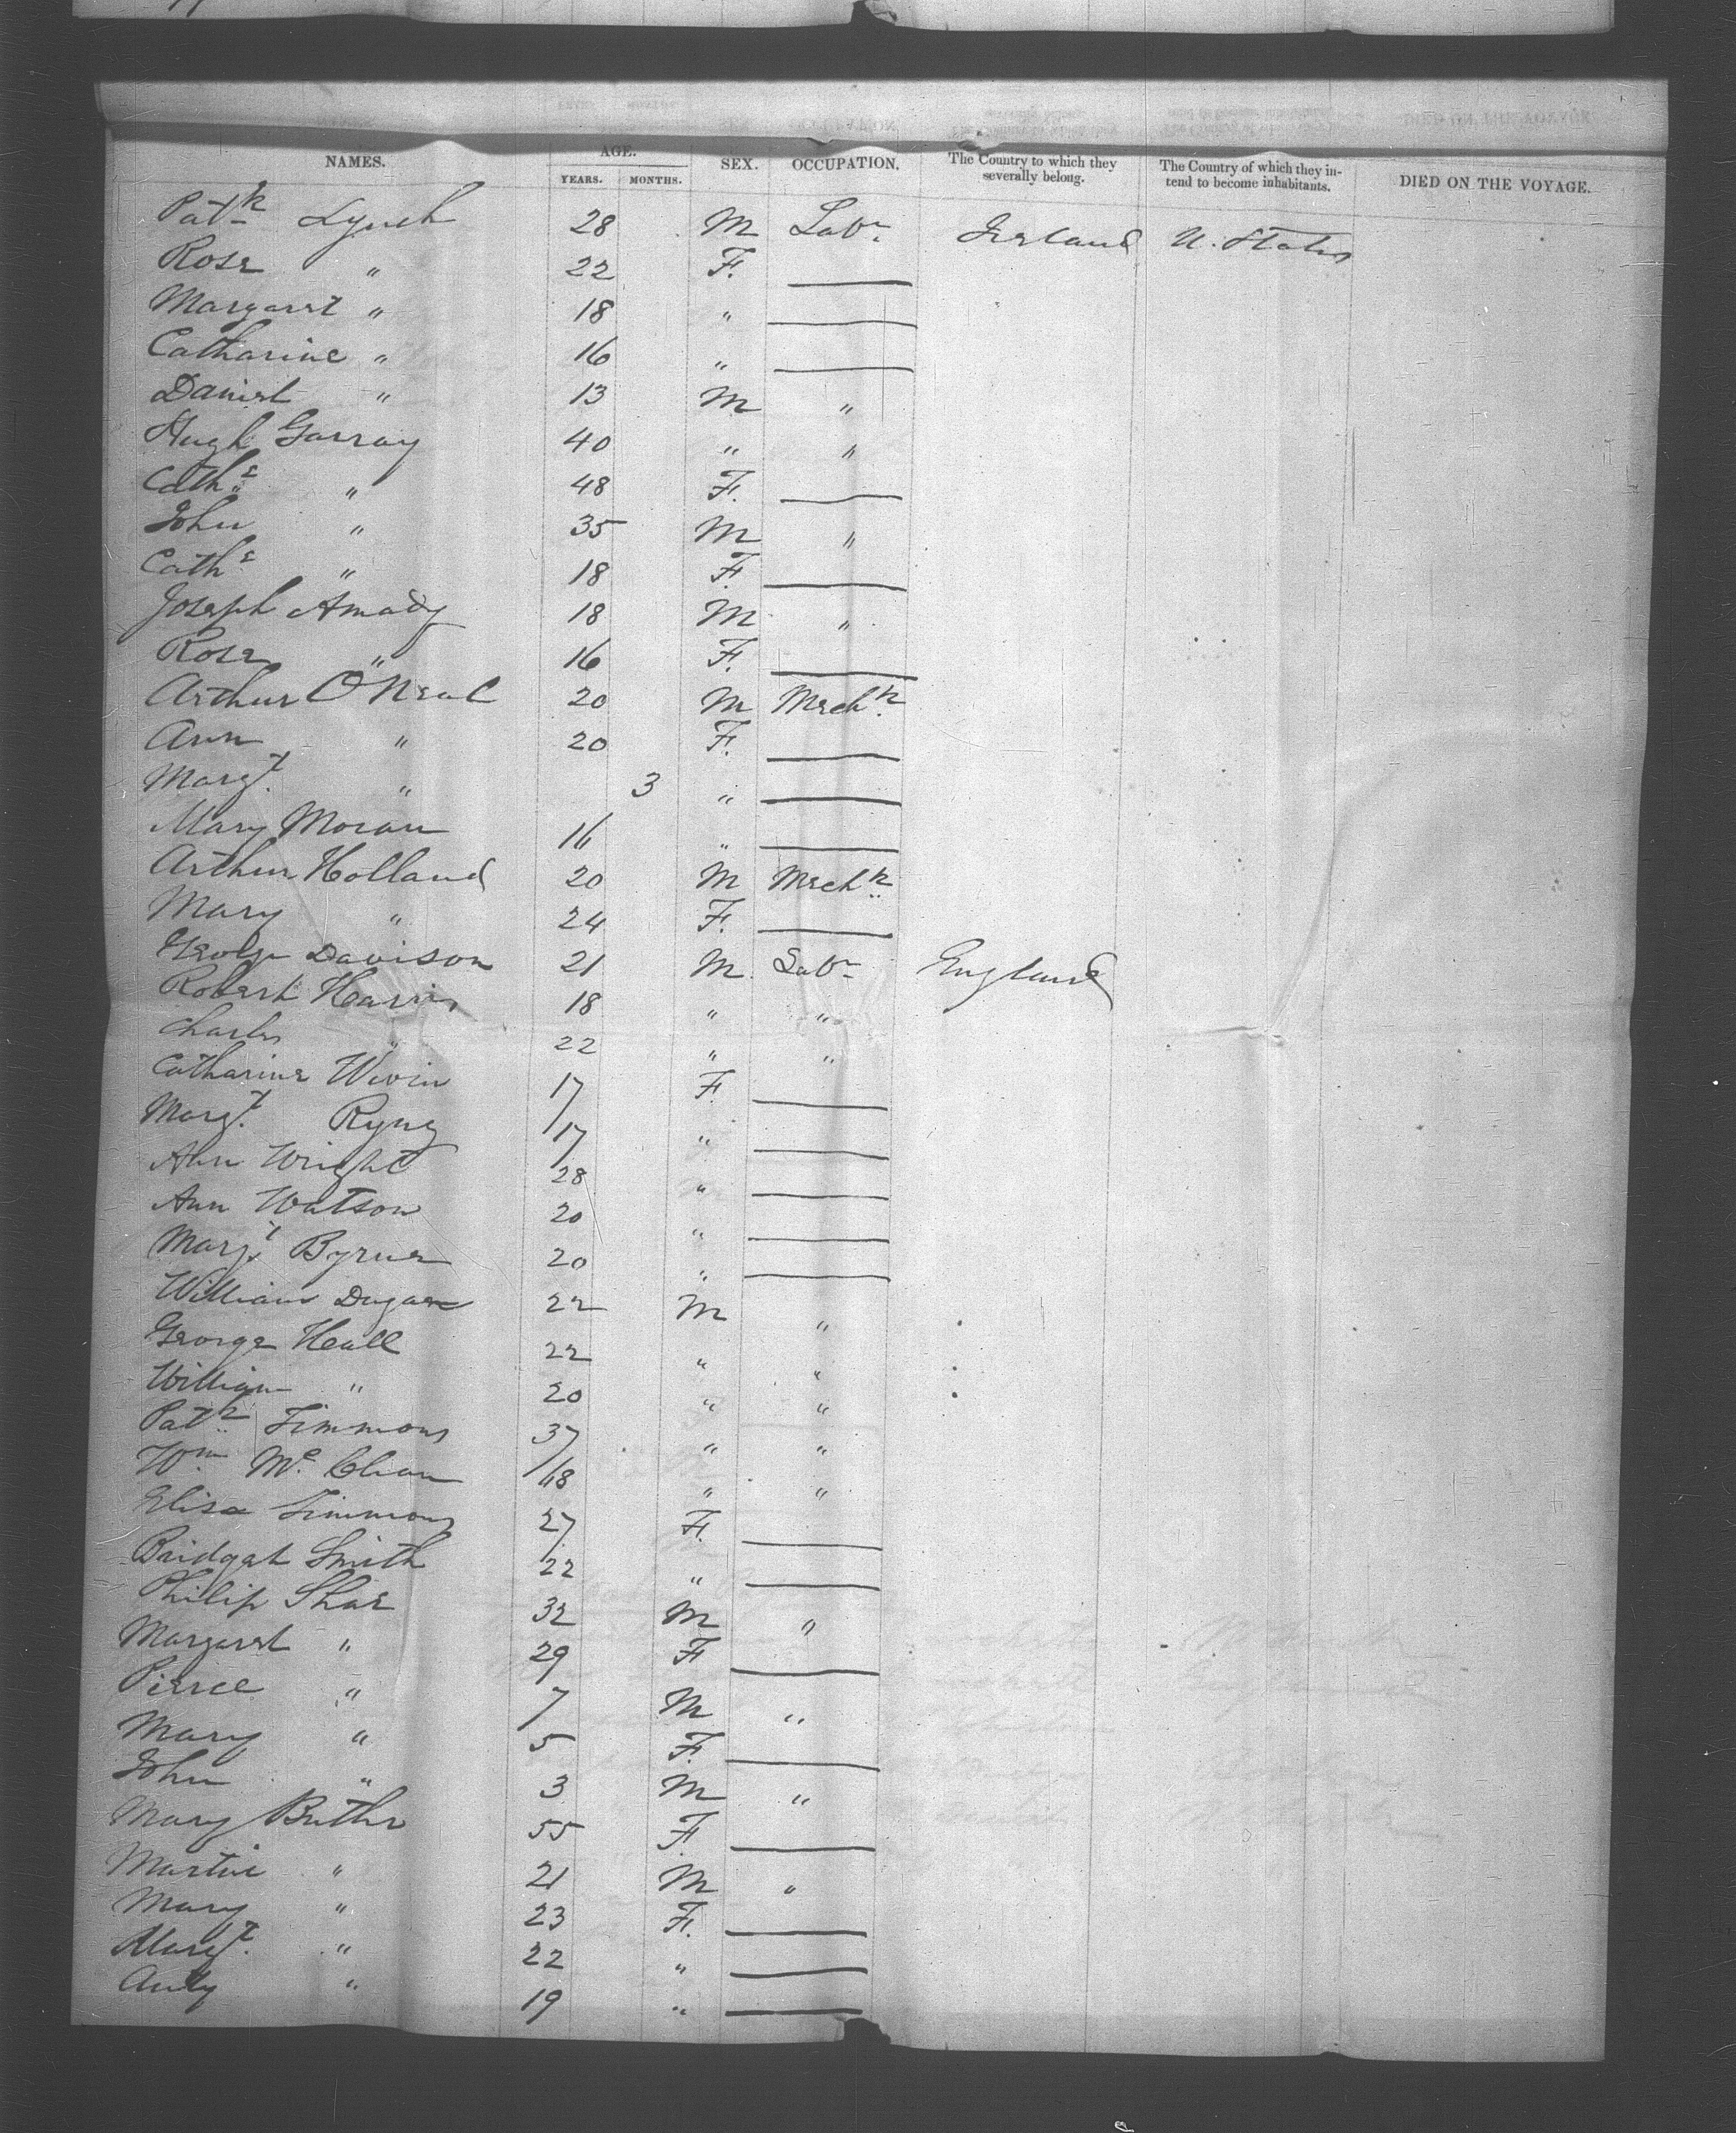 NAMES. AGE. SEX. OCCUPATION. The Country to which they severally belong. The Country of which they intend to become inhabitants. DIED ON THE VOYAGE.
YEARS. MONTHS.
Patk Lynch 28 M Labr. Ireland U. States
Rose " 22 F.
Margaret " 18 "
Catharine " 16 "
Daniel " 13 M "
Hugh Garray 40 " "
Cathe " 48 F.
John " 35 M "
Cathe " 18 F.
Joseph Amady 18 M "
Rose " 16 F.
Arthur O'Neal 20 M Mechk
Ann " 20 F.
Margt. " 3 "
Mary Moran 16 "
Arthur Holland 20 M Mechk
Mary " 24 F.
George Davison 21 M Labr England
Robert Harris 18 " "
Charles " 22 " "
Catharine 17 F.
Margt. 17 "
Ann Wright 28 "
Ann Watson 20 "
Margt Byrne 20 "
William Dugan 22 M "
George Hall 22 " "
William " 20 " "
Patk Timmons 37 " "
Wm Mc 18 " "
Elisa Timmons 27 F.
Bridget Smith 22 "
Philip Shae 32 M "
Margaret " 29 F
Pierce " 7 M "
Mary " 5 F.
John " 3 M "
Mary Butler 55 F.
Martin " 21 M "
Mary " 23 F.
Margt. " 22 "
Andy " 19 "